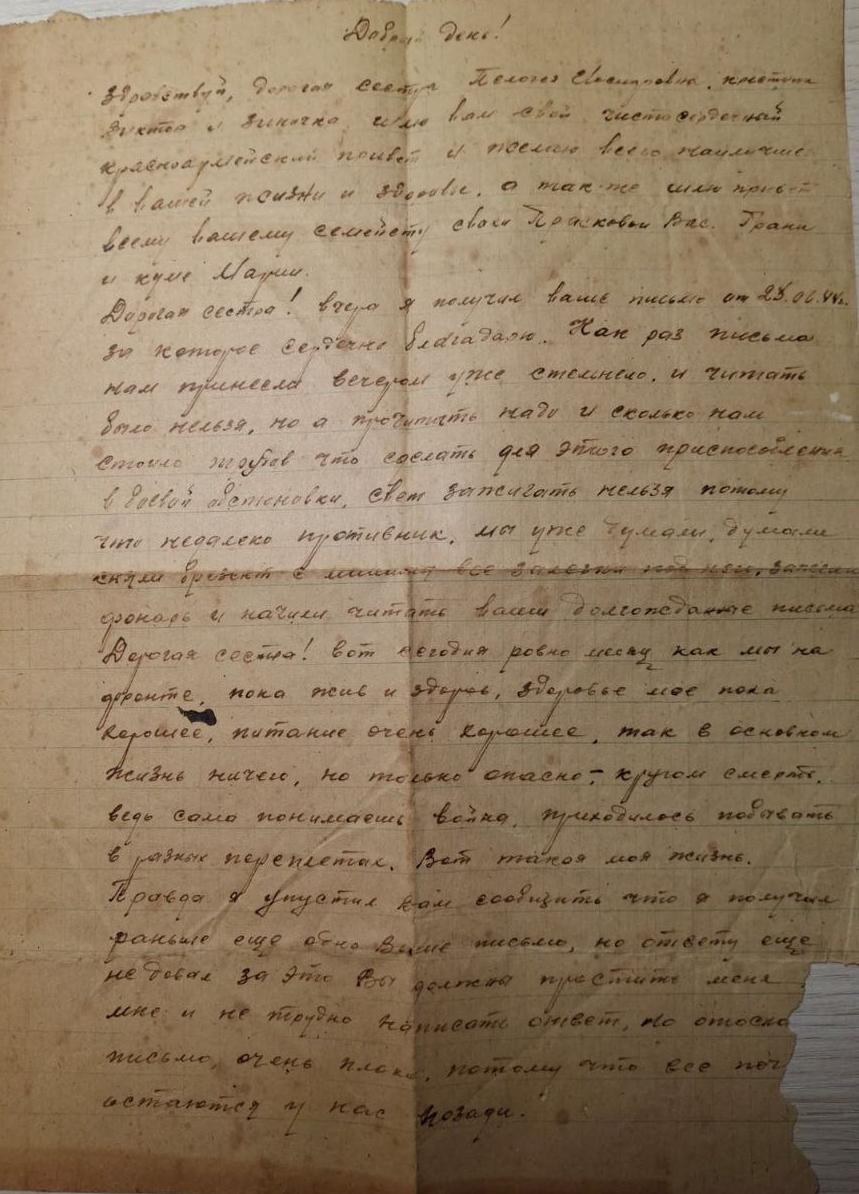 Добрый день!
Здравствуй, дорогая сестра Пелогея крестник
Виктор и Зиночка, шлю вам свой чистосердечный
красноармейский привет и желаю всего наилучше
в вашей жизни и здоровьи. а так-же шлю привет
всему вашему семейсту свахи Прасковьи Вас. Грани
и куме Марии.
Дорогая сестра! вчера я получил ваше письмо от 44г.
за которое сердечно благадарю. Как раз письма
нам принесли вечером уже стемнело. и читать
было нельзя, но а прочитать надо и сколько нам
стоило трудов что сделать для этого приспособления
в боевой обстановки, свет зажигать нельзя потому
что недалеко противник, мы уже думали, думали
сняли брезент с машины все залезли под ней, зажгли
фонарь и начили читать ваши долгожданные письма
Дорогая сестра! вот сегодня ровно месяц как мы на
фронте, пока жив и здоров, здоровье мое пока
хорошее, питание очень хорошее, так в основном
жизнь ничего, но только опасно, - кругом смерть,
ведь сама понимаешь война, приходилось побывать
в разных переплетах. Вот такая моя жизнь.
Правда я упустил вам сообщить что я получил
раньше еще одно Ваше письмо, но ответу еще
не довал за это Вы должны простить меня
мне и не трудно написать ответ, но отосла
письмо, очень плохо, потому что все поч
остаются у нас позади.